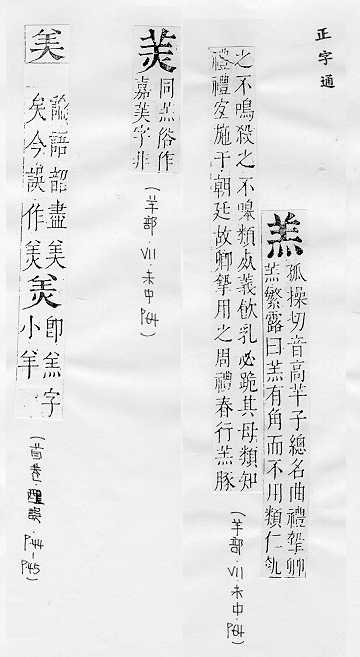 正字通
羔
孤操切音高羊子總名曲禮摯卿
羔繁露曰羔有角而不用類仁執
之不鳴殺之不嘷類死義飲乳必跪其母類知
禮禮宜施于朝廷故卿摯用之周禮春行羔豚
(羊部·VII·未中·P64)
羙
同羔俗作
嘉美字非
(羊部·VII·未中 P64)
美
論語韶盡美
矣今誤作羙
羙
即羔字
小羊
(首卷·醒誤·P44-P45)